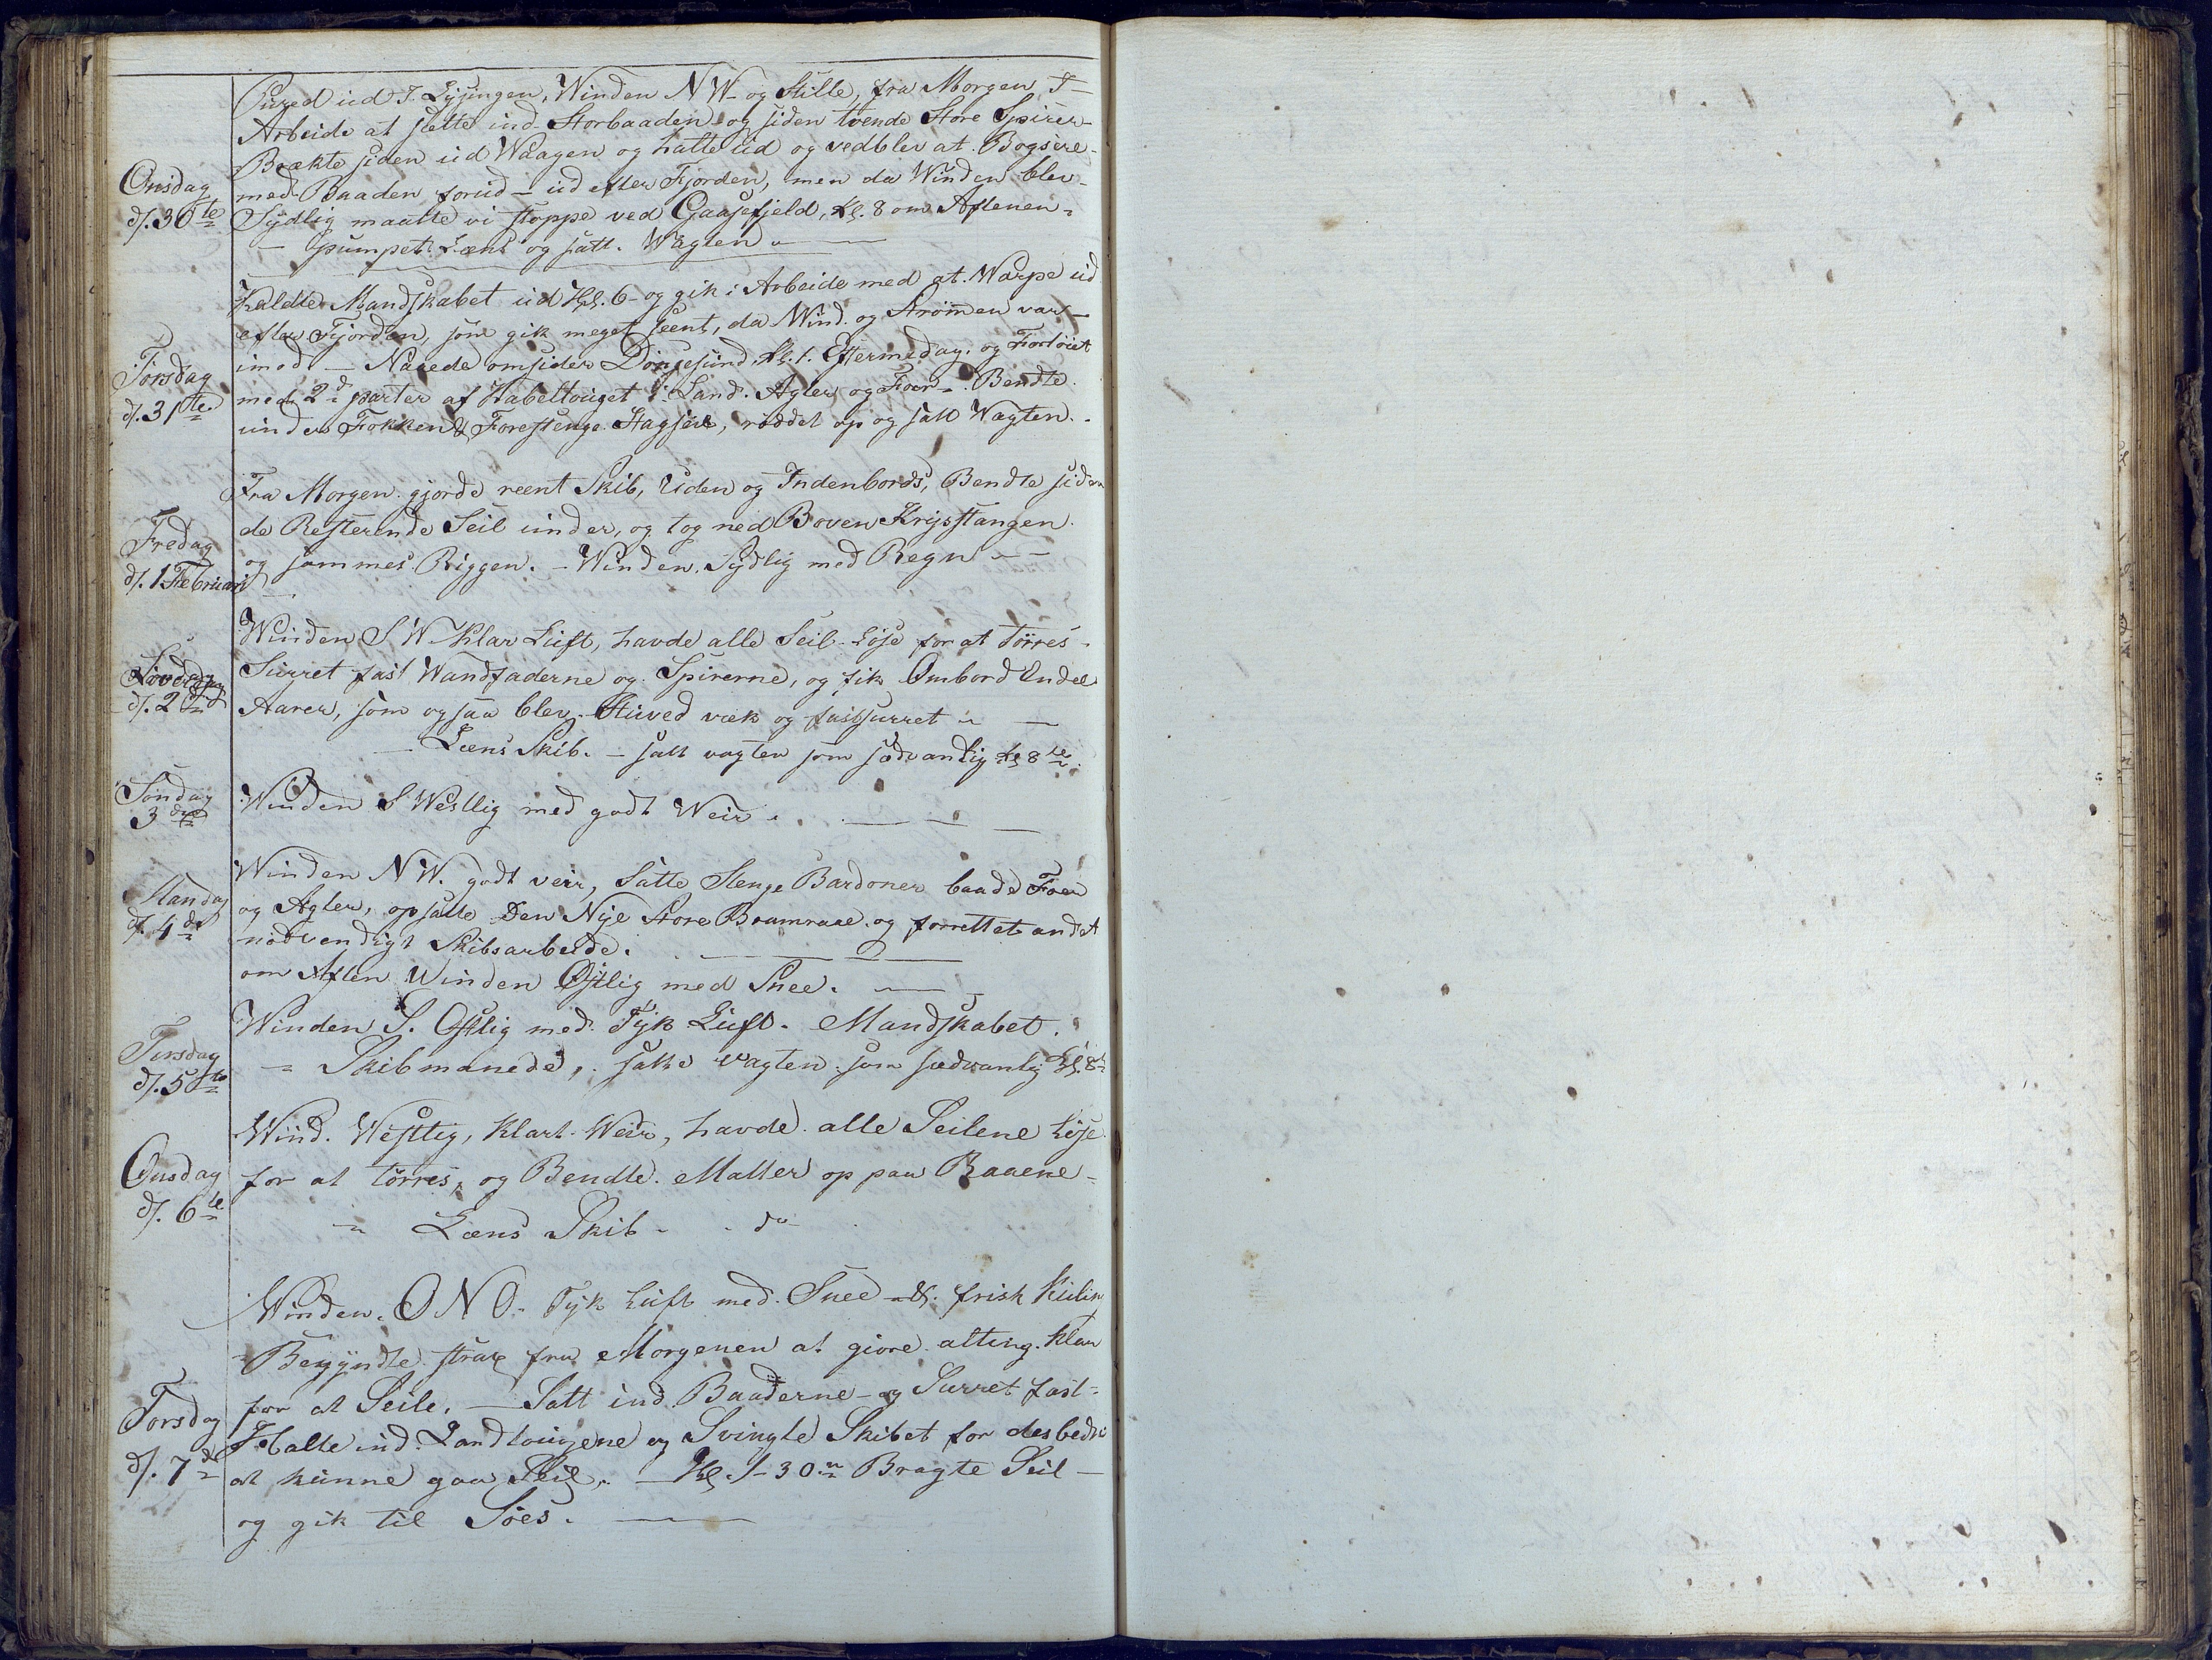 Pured ud I Lysingen, Winden NW- og Stille, fra Morgen I
Arbeide at sætte ind Storbaaden og siden tvende Store Spirer-
Brækte siden ud Waagen og halte ud og vedblev at Bogsere
Onsdag
d. 30te
med Baaden forud - ud efter Fjorden, men da Winden blev
Sydlig maatte vi stoppe ved Gaasefjeld, Kl. 8 om Aftenen
- pumpet Læns og satt. Wagten
Kaldte Mandskabet ud Kl. 6 - og gik i Arbeide med at Warpe ud
efter Fjorden, som gik meget seent, da Wind og Strømen var
Torsdag
d. 31te
imod - Naaede omsider Dongesund, Kl. 1. Eftermedag. og Fortøiet
med 2de parter af Kabeltouget i Land. Agter og Foer -. Bendte
under Fokken & Forestenge Stagseil, røddet op og satt Wagten.
Fredag
d. 1 Februari
Fra Morgen gjorde reent Skib, Uden og Indenbords, Bendte siden
de Resterende Seil under, og tog ned Boven Krysstangen
og sammes Riggen. - Winden Sydlig med Regn -
Løverdag
d. 2den
Winden SW Klar Luft, havde alle Seil Løse for at tørres -
Surret fast Wandfaderne og Spirerne, og fik Ombord Endel
Aarer, som ogsaa blev Stuved væk og fastsurret
- Læns Skib. - satt vagten som sædvanlig Kl 8te
Søndag
3die
Winden S Westlig med godt Weir.
Mandag
d. 4de
Winden NW. godt veir, Satte Stenge Bardoner baade Foer
og Agter, opsatte Den Nye Store Bramraae og forrettet andet
nødvendigt Skibsarbeide.
om Aften Winden Østlig med Snee.
Tirsdag
d. 5te
Winden S. Ostlig med Tyk Luft. Mandskabet
- Skibmanede, satte Vagten som sædvanlig Kl. 8te
Onsdag
d. 6te
Wind. Westlig, Klart Weir, havde alle Seilene Løse
for at tørres, og Bendte Matter op paa Raaene -
- Læns Skib - do
Winden. ONO. Tyk Luft med Snee & frisk Kuling
Begyndte strax fra Morgenen at giøre alting Klar
Torsdag
d. 7de
for at Seile. - Satt ind Baaderne - og Surret fast -
Halte ind Landtougene og Svingte Skibet for desbedre
at kunne gaa Seil. - Kl. 1-30m Bragte Seil -
og gik til Søes.